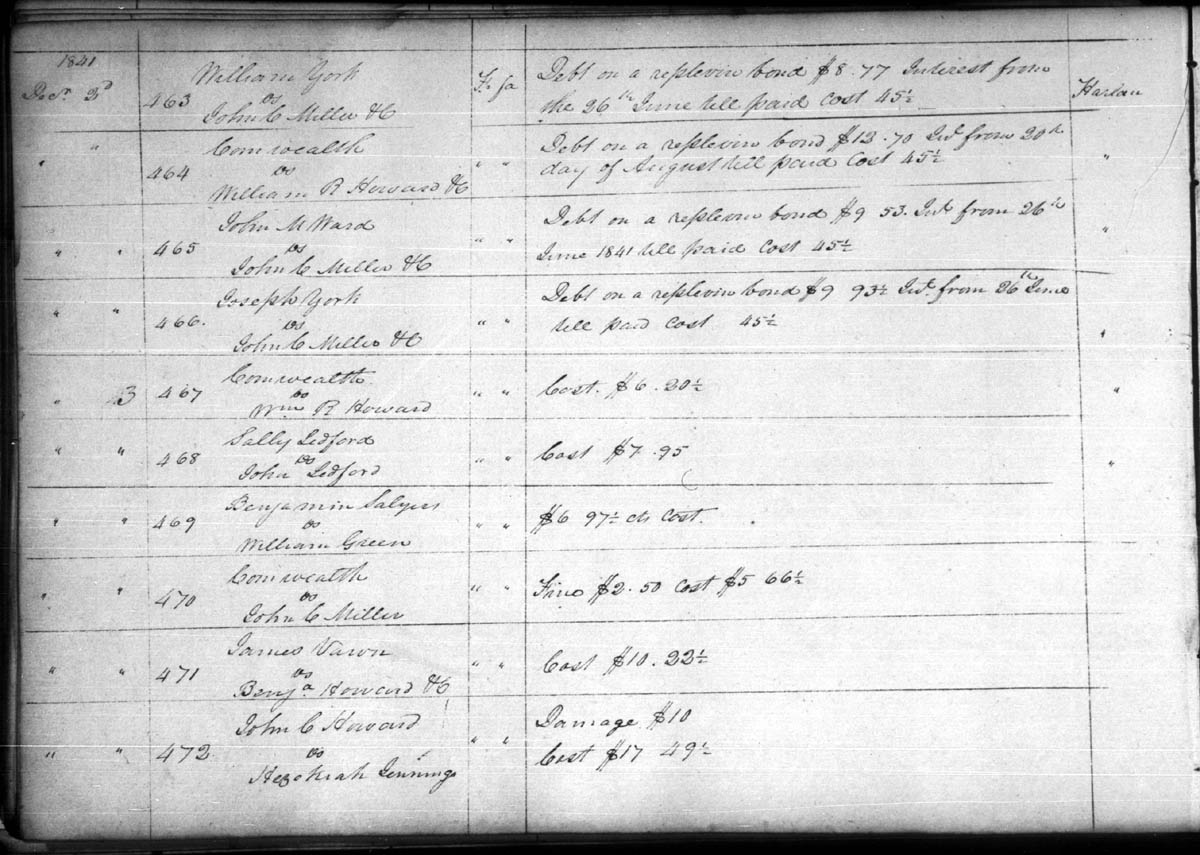 1841
Decr 3d 463 William York Fi fa Debt on a replevin bond $8.77 Interest from Harlan
vs
John C Miller &C the 26th June till paid Cost 45½
" " 464 Comwealth " " Debt on a replevin bond $12.70 Int from 20th "
vs
William R Howard &C day of August till paid Cost 45½
" " 465 John M Ward " " Debt on a replevin bond $9 53. Int from 26th "
vs
John C Miller &C June 1841 till paid Cost 45½
" " 466. Joseph York " " Debt on a replevin bond $9 93½ Int. from 26th June "
vs
John C Miller &C till paid Cost 45½
" 3 467 Comwealth " " Cost. $6.20½ "
vs
Wm R Howard
" " 468 Sally Ledford " " Cost $7.95 "
vs
John Ledford
" " 469 Benjamin Salyers " " $6 97½ cts Cost.
vs
William Green
" " 470 Comwealth " " Fine $2.50 Cost $5 66½
vs
John C Miller
" " 471 James " " Cost $10.22½
vs
Benja Howard &C
" " 472 John C Howard " " Damage $10
vs Cost $17 49½
Hezekiah Jennings